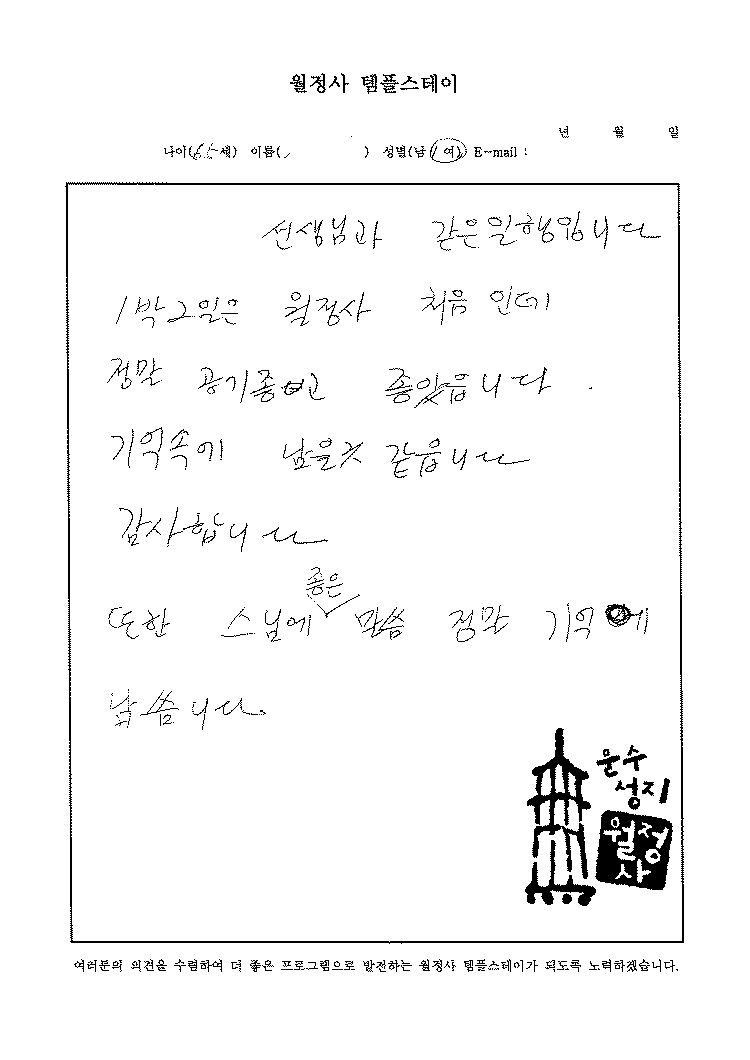 월정사 템플스테이
년 월 일
나이(65세) 이름( ) 성별(남/여) E-mail :
선생님과 같은일행입니다
1박2일은 월정사 처음 인데
정말 공기좋고 좋았읍니다.
기억속에 남을것 같읍니다
감사합니다
좋은
또한 스님에 말씀 정말 기억에
남씀니다.
문수
성지
월정
사
여러분의 의견을 수렴하여 더 좋은 프로그램으로 발전하는 월정사 템플스테이가 되도록 노력하겠습니다.